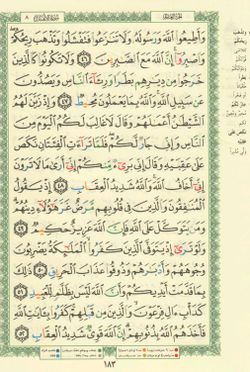 الجزء العاشر سورة الأنفال ٨
وَأَطِيعُوا۟ ٱللَّهَ وَرَسُولَهُۥ وَلَا تَنَٰزَعُوا۟ فَتَفْشَلُوا۟ وَتَذْهَبَ رِيحُكُمْ
وَٱصْبِرُوٓا۟ إِنَّ ٱللَّهَ مَعَ ٱلصَّٰبِرِينَ ٤٦ وَلَا تَكُونُوا۟ كَٱلَّذِينَ
خَرَجُوا۟ مِن دِيَٰرِهِم بَطَرًا وَرِئَآءَ ٱلنَّاسِ وَيَصُدُّونَ
عَن سَبِيلِ ٱللَّهِ وَٱللَّهُ بِمَا يَعْمَلُونَ مُحِيطٌ ٤٧ وَإِذْ زَيَّنَ لَهُمُ
ٱلشَّيْطَٰنُ أَعْمَٰلَهُمْ وَقَالَ لَا غَالِبَ لَكُمُ ٱلْيَوْمَ مِنَ
ٱلنَّاسِ وَإِنِّى جَارٌ لَّكُمْ فَلَمَّا تَرَآءَتِ ٱلْفِئَتَانِ نَكَصَ
عَلَىٰ عَقِبَيْهِ وَقَالَ إِنِّى بَرِىٓءٌ مِّنكُمْ إِنِّىٓ أَرَىٰ مَا لَا تَرَوْنَ
إِنِّىٓ أَخَافُ ٱللَّهَ وَٱللَّهُ شَدِيدُ ٱلْعِقَابِ ٤٨ إِذْ يَقُولُ
ٱلْمُنَٰفِقُونَ وَٱلَّذِينَ فِى قُلُوبِهِم مَّرَضٌ غَرَّ هَٰٓؤُلَآءِ دِينُهُمْ
وَمَن يَتَوَكَّلْ عَلَى ٱللَّهِ فَإِنَّ ٱللَّهَ عَزِيزٌ حَكِيمٌ ٤٩
وَلَوْ تَرَىٰٓ إِذْ يَتَوَفَّى ٱلَّذِينَ كَفَرُوا۟ ٱلْمَلَٰٓئِكَةُ يَضْرِبُونَ
وُجُوهَهُمْ وَأَدْبَٰرَهُمْ وَذُوقُوا۟ عَذَابَ ٱلْحَرِيقِ ٥٠ ذَٰلِكَ
بِمَا قَدَّمَتْ أَيْدِيكُمْ وَأَنَّ ٱللَّهَ لَيْسَ بِظَلَّٰمٍ لِّلْعَبِيدِ ٥١
كَدَأْبِ ءَالِ فِرْعَوْنَ وَٱلَّذِينَ مِن قَبْلِهِمْ كَفَرُوا۟ بِـَٔايَٰتِ ٱللَّهِ
فَأَخَذَهُمُ ٱللَّهُ بِذُنُوبِهِمْ إِنَّ ٱللَّهَ قَوِىٌّ شَدِيدُ ٱلْعِقَابِ ٥٢
١٨٣